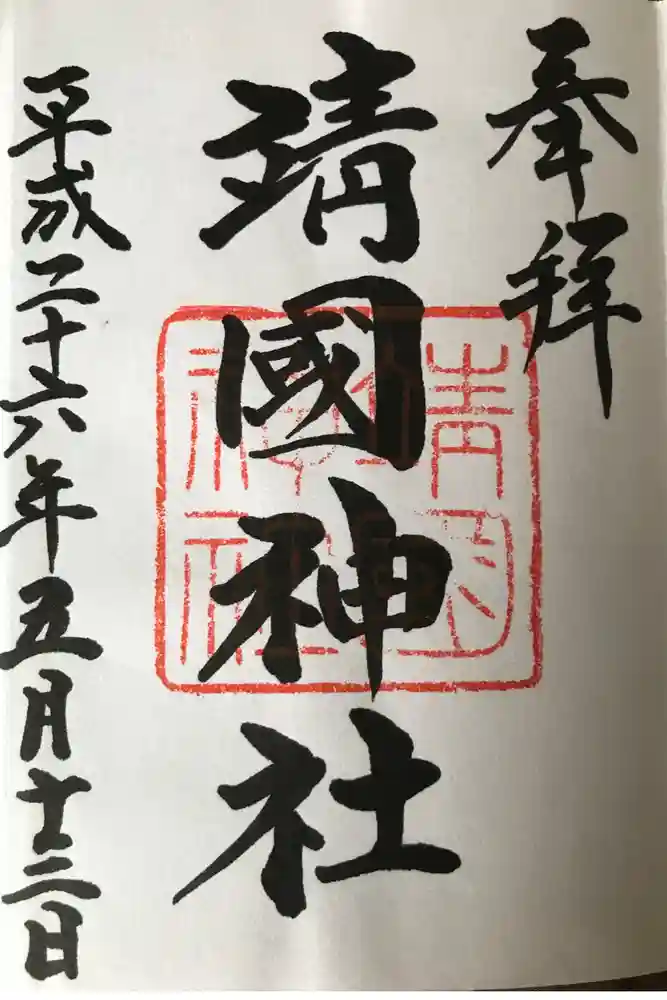 奉拝
靖國神社
靖國
神社
平成二十六年五月十三日